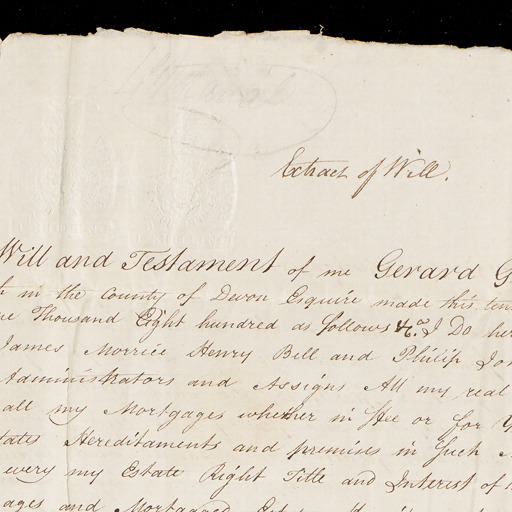 Extract of Will.
Will and Testament of me Gerard G
in the county of Devon Esquire made this ten
Thousand Eight hundred as follows &c. I Do her
James Morrice Henry Bell and Philip Jo
Administrators and Assigns All my real
all my Mortgages whether in Fee or for Y
tates Hereditaments and premises in Such
every my Estate Right Title and Interest of
ages and Mortgaged